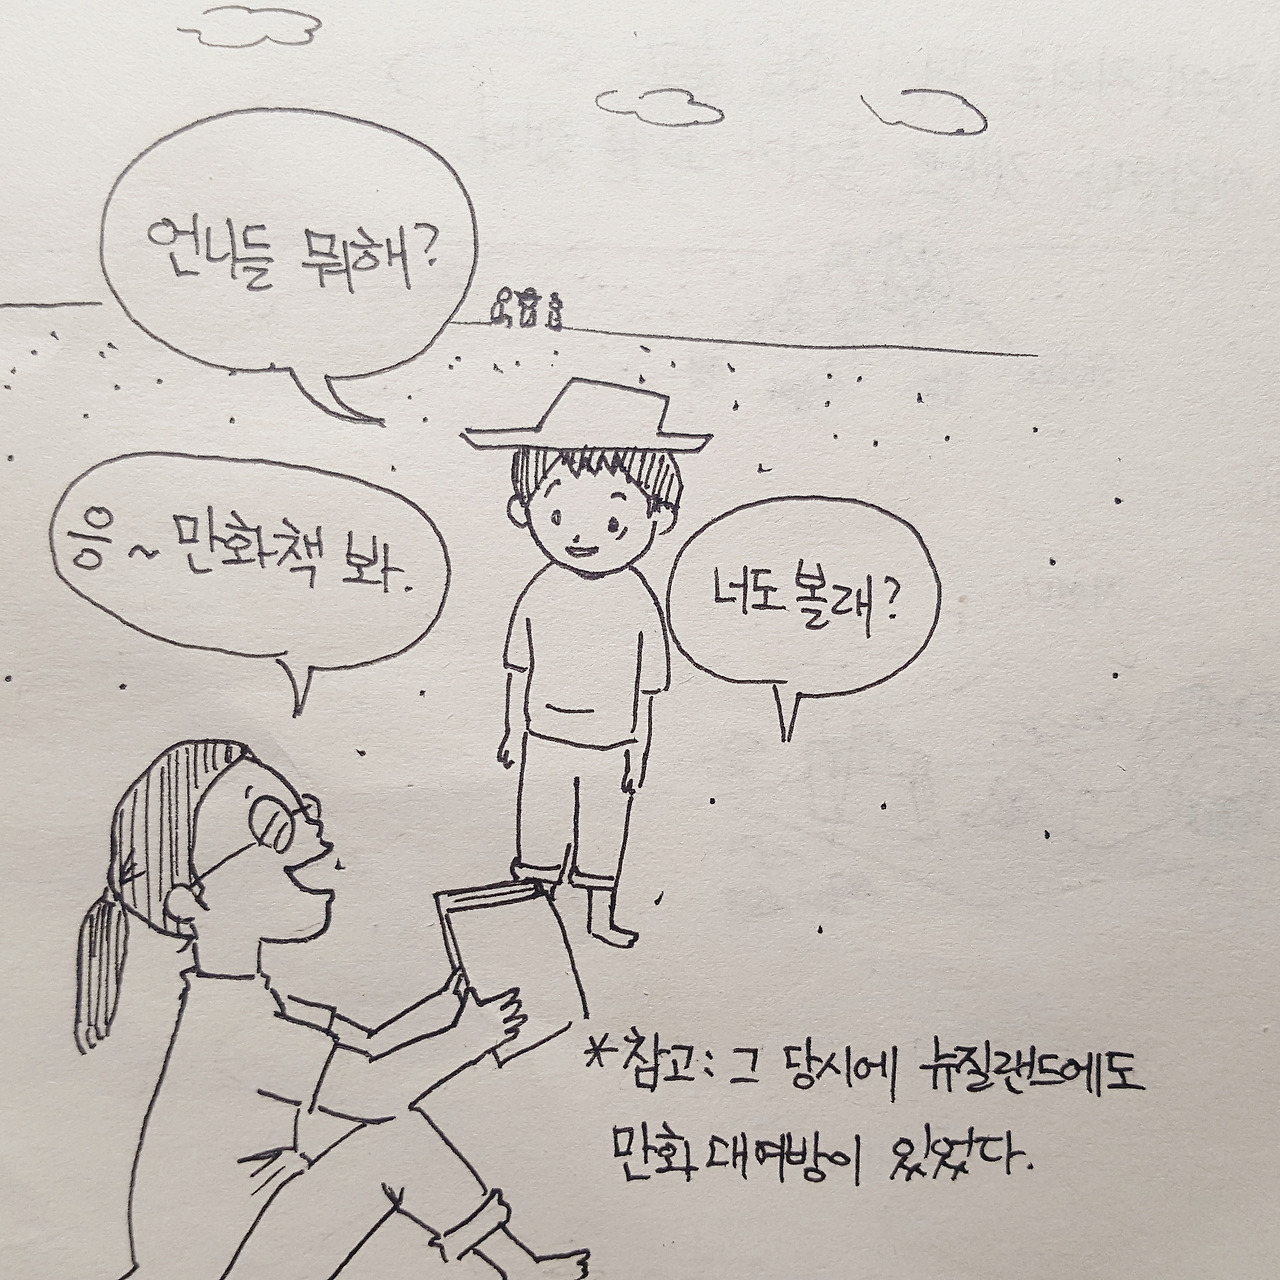 언니들 뭐해?
응~ 만화책 봐.
너도 볼래?
*참고: 그 당시에 뉴질랜드에도
만화 대여방이 있었다.